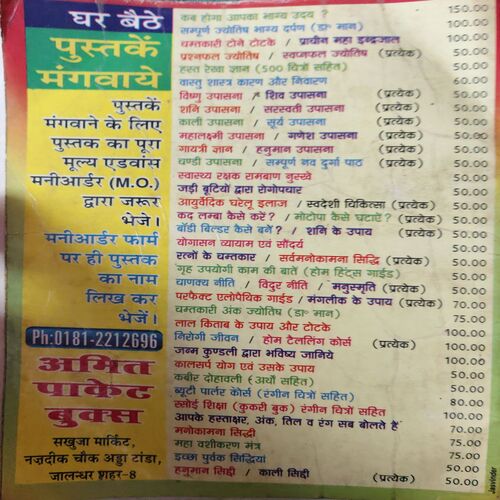 घर बैठे
पुस्तकें
मंगवाये
पुस्तकें
मंगवाने के लिए
पुस्तक का पूरा
मूल्य एडवांस
मनीआर्डर (M.O.)
द्वारा जरूर
भेजे।
मनीआर्डर फार्म
पर ही पुस्तक
का नाम
लिख कर
भेजें।
Ph:0181-2212696
अमित
पाकेट
बुक्स
सखुजा मार्किट,
नज़दीक चौक अड्डा टांडा,
जालन्धर शहर-8
कब होगा आपका भाग्य उदय ? 150.00
सम्पूर्ण ज्योतिष भाग्य दर्पण (डा॰ मान) 100.00
चमत्कारी टोने टोटके / प्राचीन महा इन्द्रजाल 100.00
प्रश्नफल ज्योतिष / स्वप्नफल ज्योतिष (प्रत्येक) 50.00
हस्त रेखा ज्ञान (500 चित्रों सहित) 50.00
वास्तु शास्त्र कारण और निवारण 60.00
विष्णु उपासना / शिव उपासना (प्रत्येक) 50.00
शनि उपासना / सरस्वती उपासना (प्रत्येक) 50.00
काली उपासना / सूर्य उपासना (प्रत्येक) 50.00
महालक्ष्मी उपासना / गणेश उपासना (प्रत्येक) 50.00
गायत्री ज्ञान / हनुमान उपासना (प्रत्येक) 50.00
चण्डी उपासना / सम्पूर्ण नव दुर्गा पाठ (प्रत्येक) 50.00
स्वास्थ्य रक्षक रामबाण नुस्खे 50.00
जड़ी बूटियों द्वारा रोगोपचार 50.00
आयुर्वेदिक घरेलू इलाज / स्वदेशी चिकित्सा (प्रत्येक) 50.00
कद लम्बा कैसे करें ? / मोटापा कैसे घटाऐं ? (प्रत्येक) 50.00
बॉडी बिल्डर कैसे बनें ? / शनि के उपाय (प्रत्येक) 50.00
योगासन व्यायाम एवं सौंदर्य 50.00
रत्नों के चमत्कार / सर्वमनोकामना सिद्धि (प्रत्येक) 50.00
गृह उपयोगी काम की बातें (होम हिंट्स गाईड) 50.00
चाणक्य नीति / विदुर नीति / मनुस्मृति (प्रत्येक) 50.00
परफैक्ट एलोपैथिक गाईड / मंगलीक के उपाय (प्रत्येक) 70.00
चमत्कारी अंक ज्योतिष (डा॰ मान) 75.00
लाल किताब के उपाय और टोटके 100.00
निरोगी जीवन / होम टैलरिंग कोर्स (प्रत्येक) 100.00
जन्म कुण्डली द्वारा भविष्य जानिये 100.00
कालसर्प योग एवं उसके उपाय 100.00
कबीर दोहावली (अर्थों सहित) 50.00
ब्यूटी पार्लर कोर्स (रंगीन चित्रों सहित) 80.00
रसोई शिक्षा (कुकरी बुक) रंगीन चित्रों सहित) 100.00
आपके हस्ताक्षर, अंक, तिल व रंग सब बोलते हैं 70.00
मनोकामना सिद्धी 75.00
महा वशीकरण मंत्र 75.00
इच्छा पूर्वक सिद्धियां 75.00
हनुमान सिद्दी / काली सिद्दी (प्रत्येक) 50.00